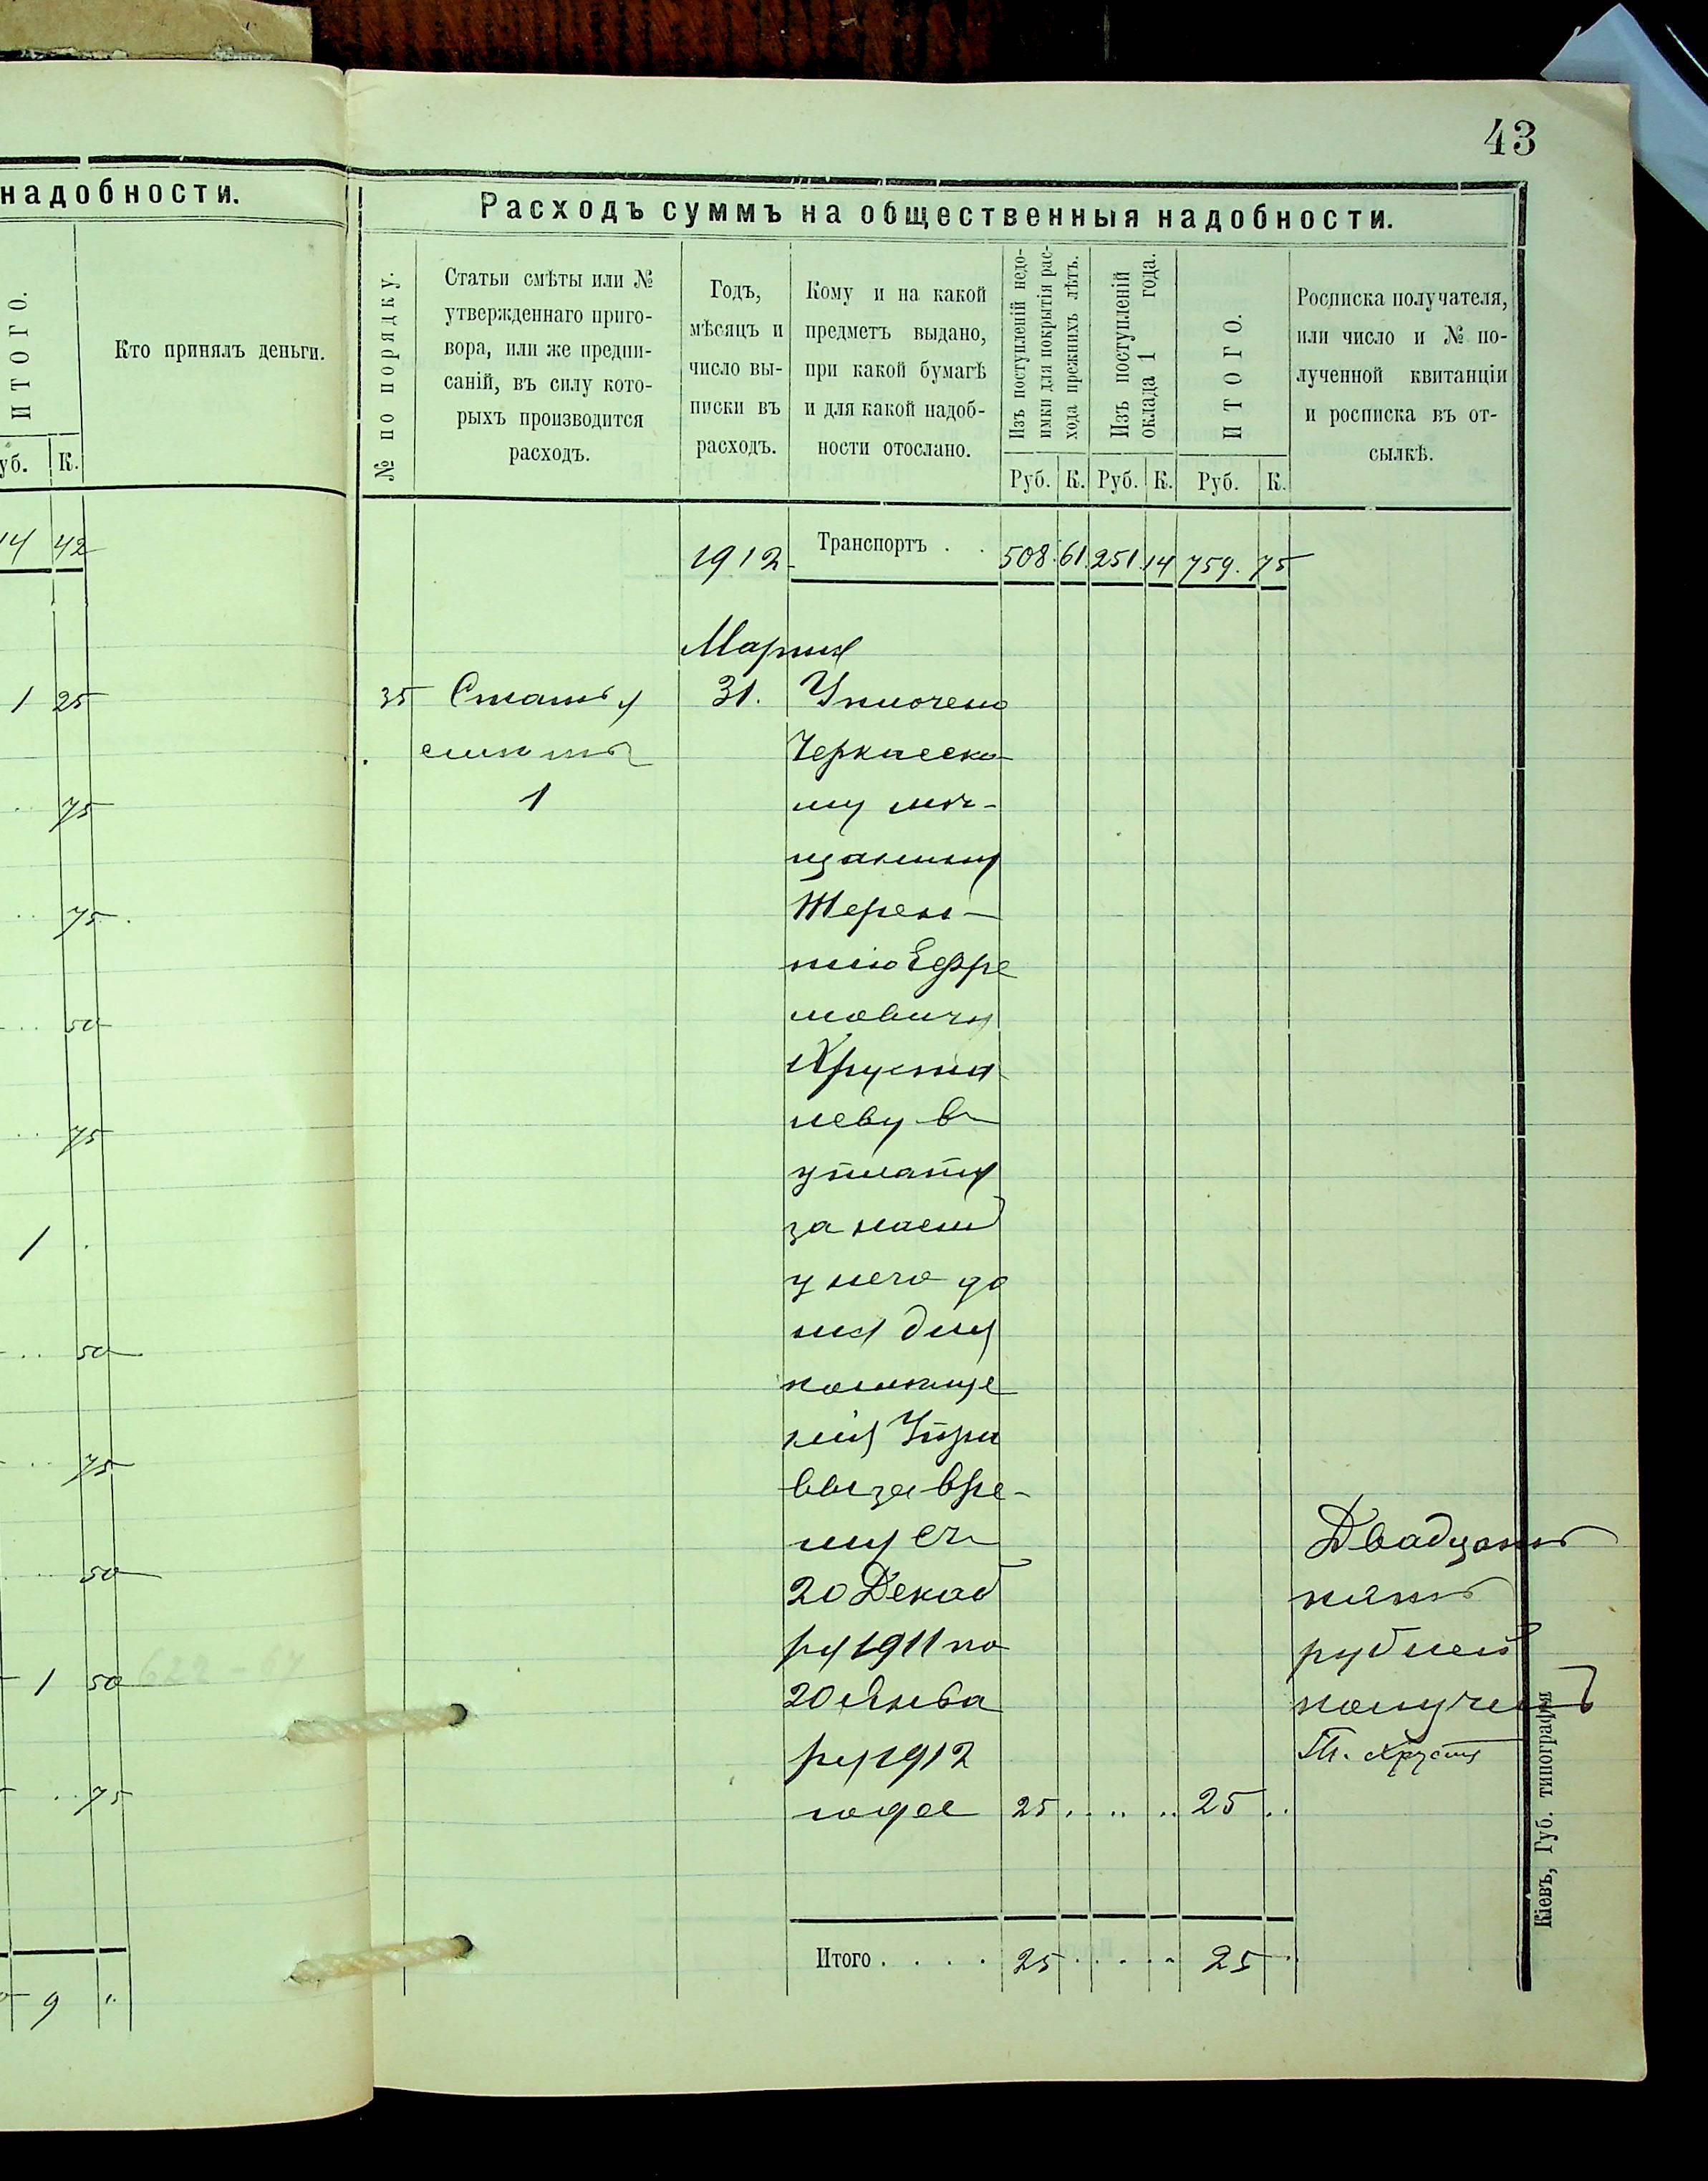 43
надобности.
ИТОГО.
Кто принялъ деньги.
уб. К.
14 42
1 25
.. 75
.. 75.
.. 50
.. 75
1 .
.. 50
.. 75
.. 50
1 50 622-67
.. 75
9 ..
Расходъ суммъ на общественныя надобности.
№ по порядку.
Статьи смѣты или №
утвержденнаго приго-
вора, или же предпи-
саній, въ силу кото-
рыхъ производится
расходъ.
Годъ,
мѣсяцъ и
число вы-
писки въ
расходъ.
Кому и на какой
предметъ выдано,
при какой бумагѣ
и для какой надоб-
ности отослано.
Изъ поступленій недо-
имки для покрытія рас-
хода прежнихъ лѣтъ.
Изъ поступленій
оклада 1 года.
ИТОГО.
Росписка получателя,
или число и № по-
лученной квитанціи
и росписка въ от-
сылкѣ.
Руб. К. Руб. К. Руб. К.
1912 Транспортъ . . 508. 61. 251. 14 759. 75
Марта
35 Статья 31. Уплочено
смѣты Черкасско-
1 му мѣ-
щанину
Терен-
тію Ефре
мовичу
Хруста
леву въ
уплату
за наемъ
у него до
ма для
помѣще
нія Упра
вы за вре-
мя съ
20 Декаб
ря 1911 по
20 Янва
ря 1912
года 25 . .. .. 25 ..
Двадцать
пять
рублей
получилъ
Т.
Итого . . . . 25 . . . . 25 ..
Кіевъ, Губ. типографія